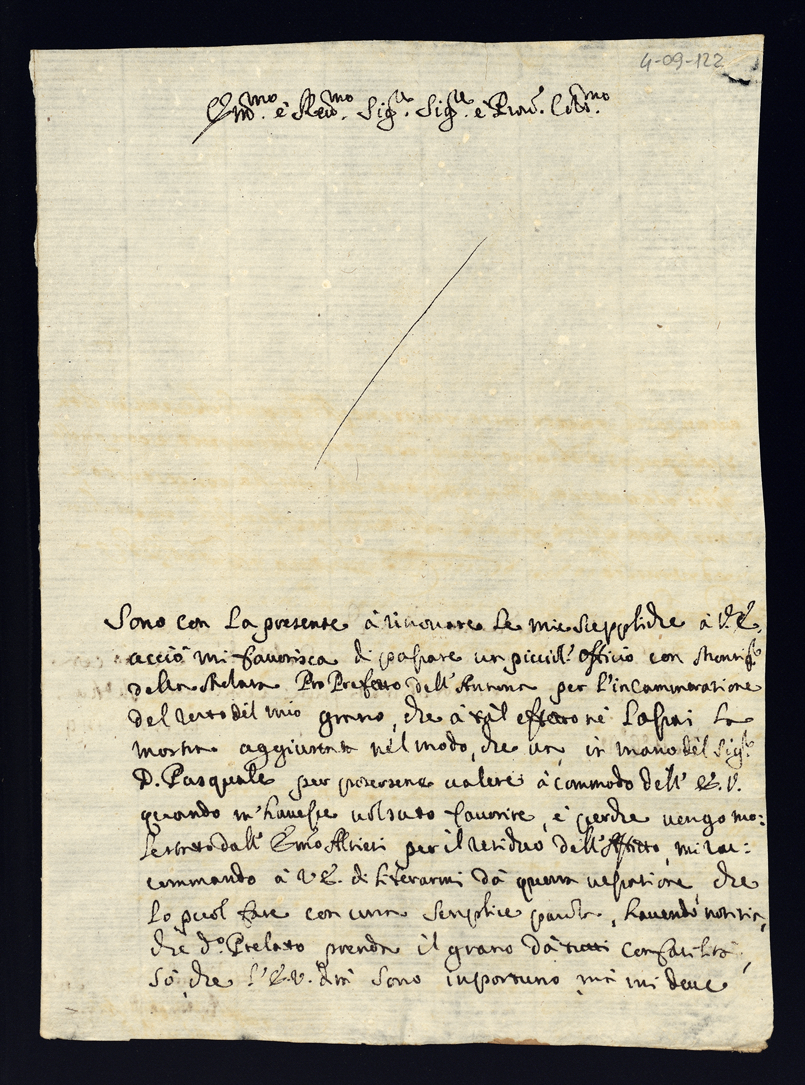 4-09-122
Em.mo e Rev.mo Sig.re Sig.re e Pron. Col.mo
Sono con la presente à rinovare le mie suppliche à V.E.
acciò mi favorisca di passare un piccol' offitio con Monsig.r
della Molara Pro Prefetto dell'Annona per l'incammeratione
del resto del mio grano, che à tal effetto nè lasciai la
mostra aggiustata nel modo, che va, in mano del Sig.r
D. Pasquale per potersene valere à commodo dell' E.V.
quando m'havesse voluto favorire, e perche vengo mo:
lestato dall' Em.o Altieri per il residuo dell'Affitto, mi rac:
commando à V.E. di liberarmi dà questa vessatione che
lo puol fare con una semplice parola, havendo notitia,
che d.o Prelato prende il grano dà tutti con facilità,
sò, che l'E.V. dirà sono importuno, mà mi deve